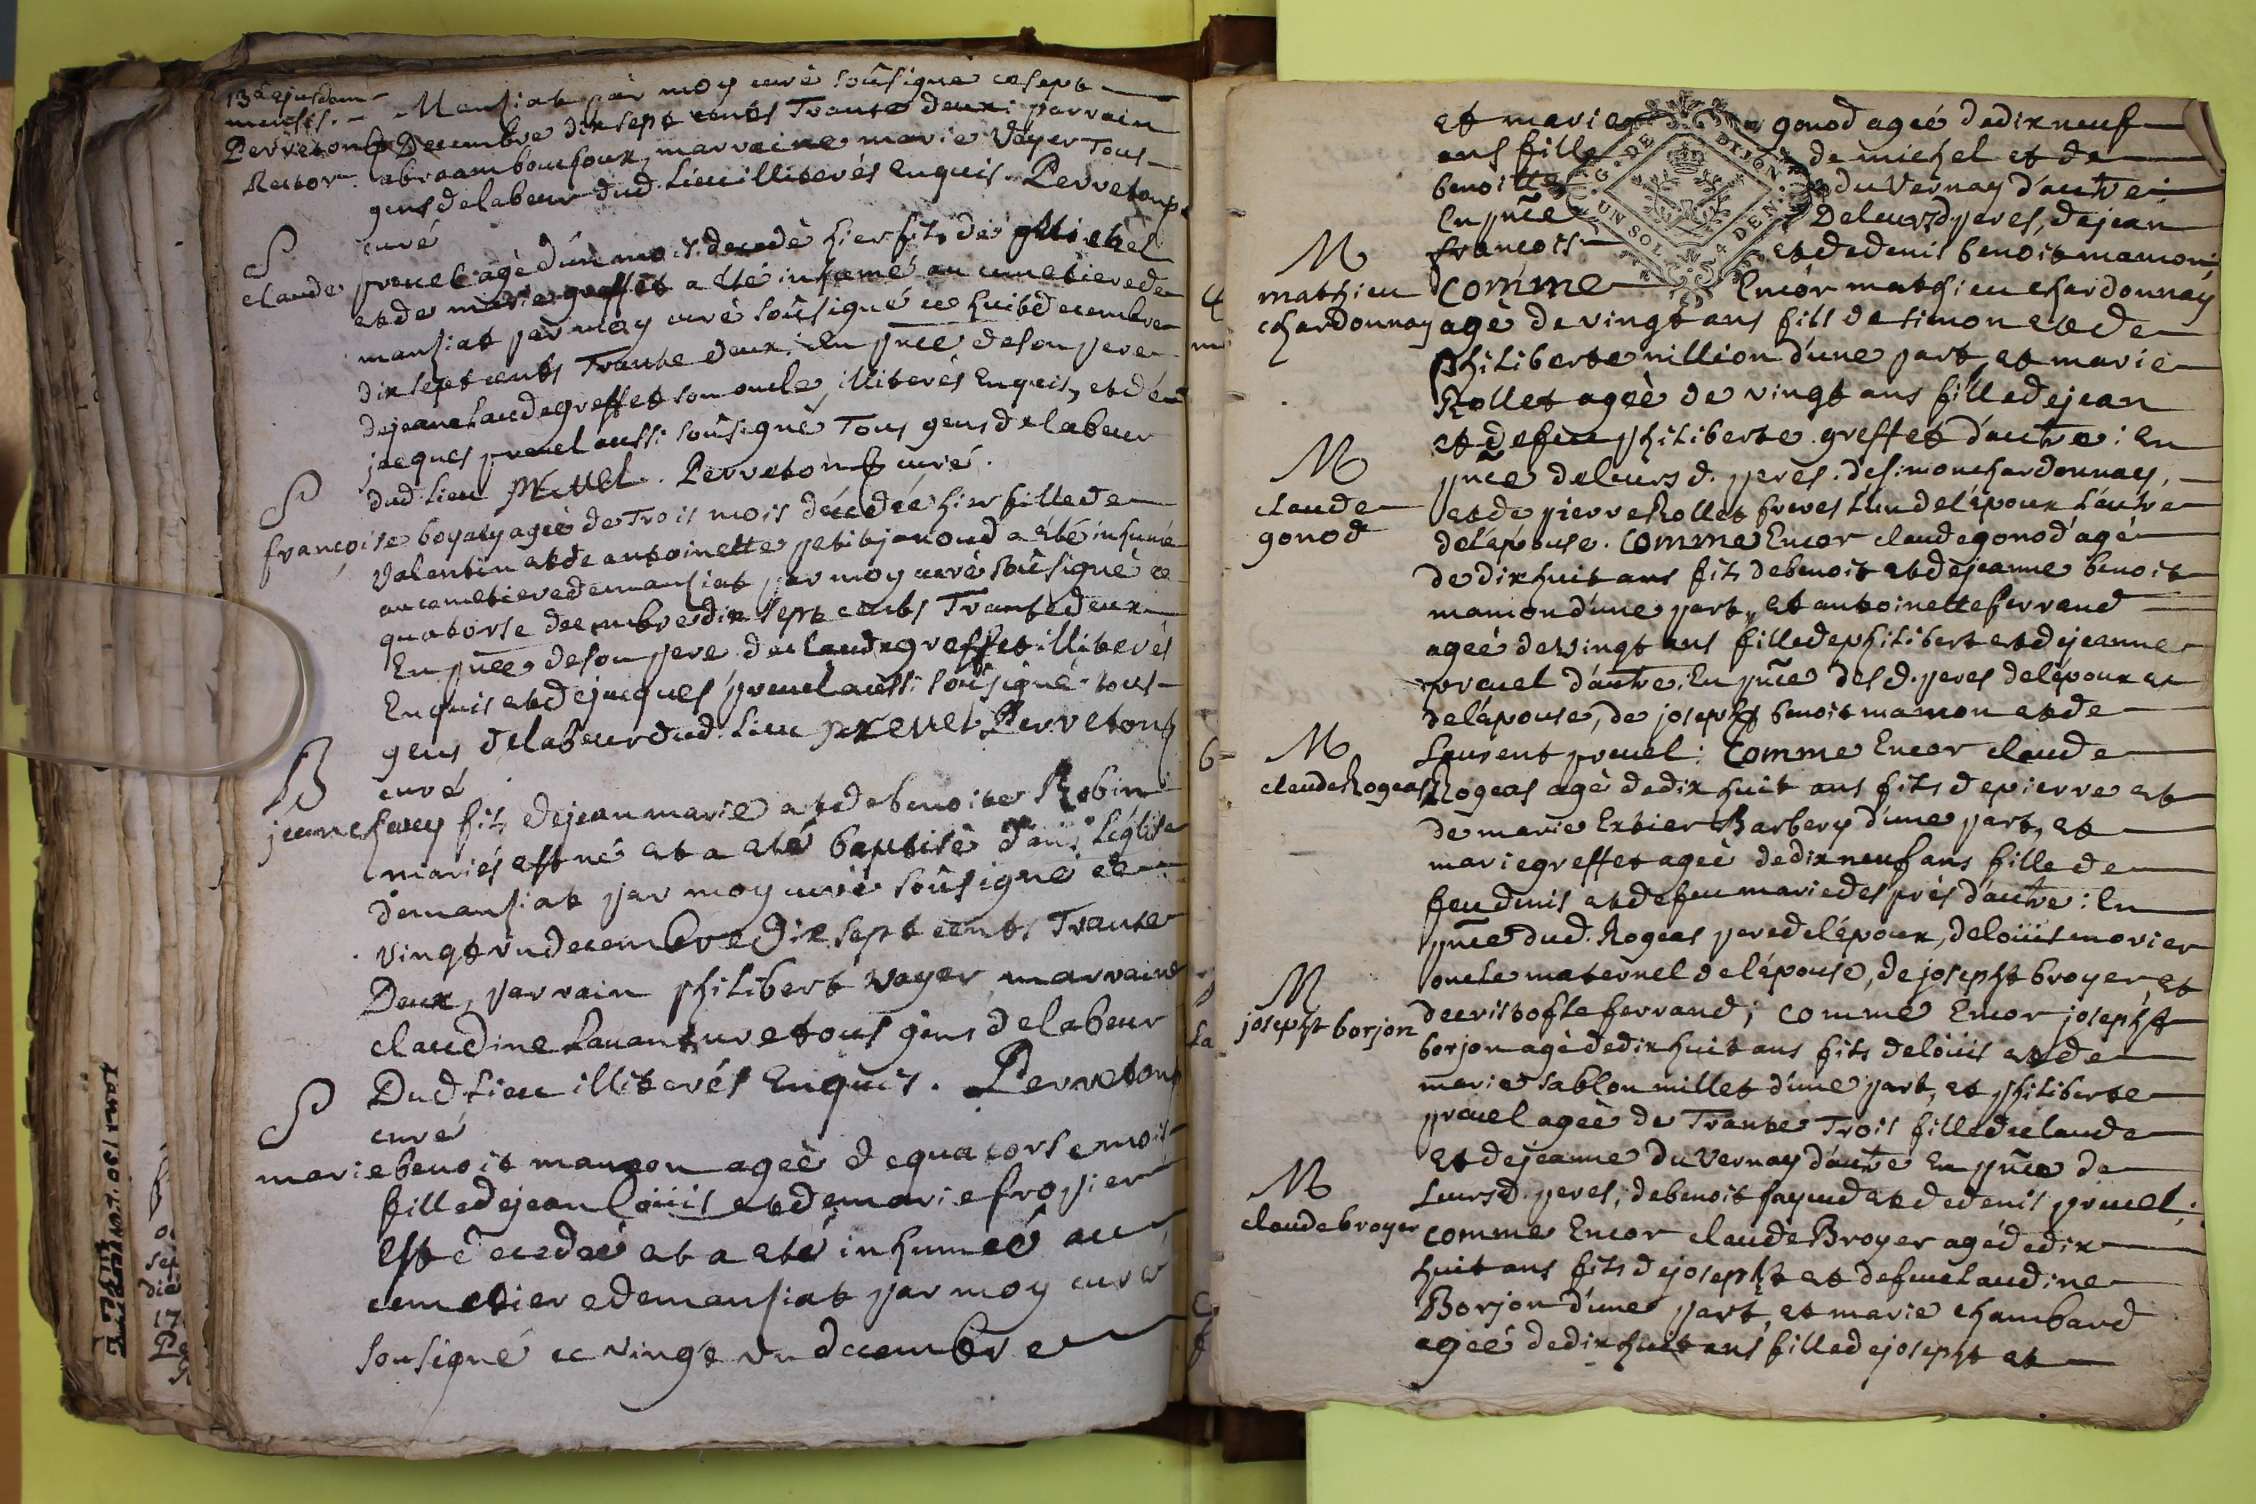 13ᵃ ejusdem
mensis.
Perreton
Rector
Mansiat par moy curé soûsigné ce sept
Decembre dix sept cents Trante deux: parrain
abraam bouchoux, marraine marie Voyer Tous
gens de labeur dud. Lieu illiterés Enquis. Perreton
curé
S
claude pruel agé d'un mois decedé hier fits de Michel
et de marie greffet a été inhumé au cimetiere de
mansiat par moy curé soûsigné ce huit decembre
dix sept cents Trante deux: En pñce de son pere
de jean claude greffet son oncle, illiterés Enquis, et de
jacques pruel aussi soûsigné Tous gens de labeur
dud. Lieu PREVEL. Perreton curé.
S
françoise boyaty ageé de Trois mois décedeé hier fille de
valentin et de antoinette petitjanoud a été inhumeé
au cemetiere de mansiat par moy curé soûsigné ce
quatorse decembre dix sept cents Trante deux
En pñce de son pere de claude greffet illiterés
Enquis et de jacques pruel aussi soûsigné tous
gens de labeur dud. Lieu PREVEL Perreton
curé
B
jean chavy fits de jean marie et de benoite Robin
mariés est né et a eté baptisé dans L'église
de mansiat par moy curé soûsigné ce
vingt un decembre dix sept cents Trante
Deux, parrain philibert voyer, marraine
claudine Lavanture tous gens de labeur
Dud Lieu illiterés Enquis. Perreton
curé
S
marie benoit manon ageé de quatorse mois
fille de jean Loüis et de marie fropier
est decedeé et a eté inhumeé au
cemetiere de mansiat par moy curé
sousigné ce vingt un decembre
G. DE DIJON
UN SOL 4 DEN.
et marie gonod ageé de dix neuf
ans fille de michel et de
benoitte du Vernay d'autre:
En pñce De leursd. peres, de jean
françois et de denis benoit mamon:
M
mathieu
chardonnay
comme Encor mathieu chardonnay
agé de vingt ans fils de simon et de
philiberte nillion d'une part et marie
Rollet ageé de vingt ans fille de jean
et de feue philiberte greffet d'autre: En
pñce de leurs d. peres. de simon chardonnay,
et de pierre Rollet freres L'un de l'époux L'autre
de l'épouse.
M
claude
gonod
comme Encor claude gonod agé
de dix huit ans fits de benoit et de jeanne benoit
mamon d'une part, et antoinette ferrand
ageé de vingt ans fille de philibert et de jeanne
pruel d'autre: En pñce des d. peres de l'époux et
de l'épouse, de joseph benoit mamon et de
Laurent pruel:
M
claude Rogeas
Comme Encor claude
Rogeas agé de dix huit ans fits de pierre et
de marie Extier Barbery d'une part, et
marie greffet ageé de dix neuf ans fille de
feu denis et de feu marie desprès d'autre: En
pñce dud. Rogeas pere de l'époux, de loüis morier
oncle maternel de l'épouse, de josepht broyer, et
de cristofle ferrand;
M
josepht borjon
comme Encor josepht
borjon agé de dix huit ans fits de loüis et de
marie sablon millet d'une part, et philiberte
pruel ageé de Trante Trois fille de claude
et de jeanne du Vernay d'autre En pñce de
Leursd. peres, de benoit fayoud et de denis pruel;
M
claude broyer
comme Encor claude Broyer agé de dix
huit ans fits de josepht et de feue claudine
Borjon d'une part, et marie chambard
ageé de dix huit ans fille de josepht et